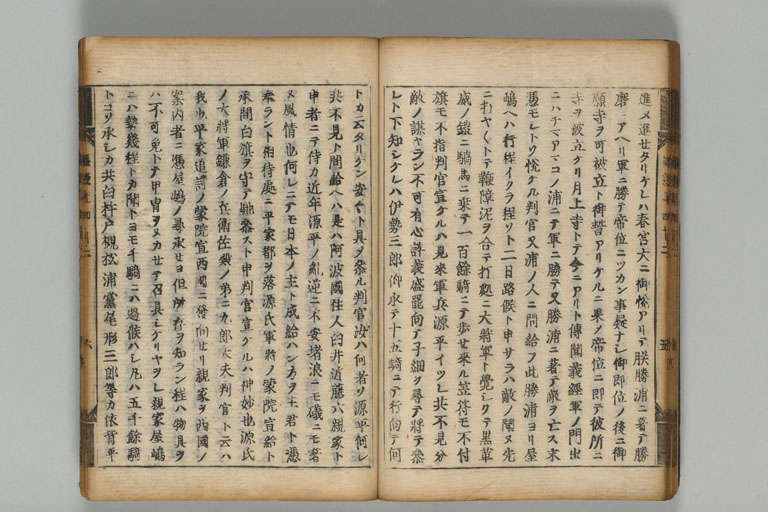 進メ進セタリケレハ春宮大ニ御悦アリテ朕勝浦ニ著テ勝
磨ニアヘリ軍ニ勝テ帝位ニツカン事疑ナシ御即位ノ後ニ御
願寺ヲ可被立ト御誓アリケルニ果ノ帝位ニ即テ彼所ニ
寺ヲ被立ケリ月上寺トテ今ニアリト傳聞義經軍ノ門出
ニハチマアマコノ浦ニテ軍ニ勝テ又勝浦ニ著テ敵ヲ亡ス末
憑モシトソ悦ケル判官又浦ノ人ニ問給フ此勝浦ヨリ屋
嶋ヘハ行程イクラ程ソト二日路候ト申サラハ敵ノ聞ヌ先
ニ打ヤ〱トテ鞭障泥ヲ合テ打處ニ大将軍ト覺シクテ黒革
威ノ鎧ニ騎馬ニ乗テ一百餘騎ニテ歩セ来ル笠符モ不付
旗モ不指判官宣ケルハ見来軍兵源平イツレ共不見分
敵ノ謀ヤラン不可有心許義盛罷向テ子細ヲ尋テ将テ参
レト下知シケレハ伊勢三郎仰承テ十五騎ニテ行向テ何
トカ云タリケン安々ト具ヲ参ル判官汝ハ何者ソ源平何レ
共不見ト問給ヘハ是ハ阿波國住人臼井近藤六親家ト
申者ニテ侍カ近年源平ノ亂逆ニ不安堵浪ニモ礒ニモ著
ヌ風情也何レニテモ日本ノ主ト成給ハン方ヲ主君ト憑
奉ラント相待處ニ平家都ヲ落源氏軍将ノ蒙院宣給ト
承間白旗ヲ守テ馳参スト申判官宣ケルハ神妙也源氏
ノ大将軍鎌倉ノ兵衛佐殿ノ弟ニ九郎大夫判官ト云ハ
我也平家追討ノ蒙院宣西國ニ發向セリ親家ヲ西國ノ
案内者ニ憑屋嶋ノ尋承セヨ但所存ヲ知ラン程ハ物具ヲ
ハ不可免トテ甲冑ヲヌカセテ召具シケリヤヲレ親家屋嶋
ニハ勢幾程トカ聞トヨモ千騎ニハ過候ハシ凡ハ五千餘騎
トコソ承シカ共臼杵戸槻松浦黨尾形三郎等カ依背平